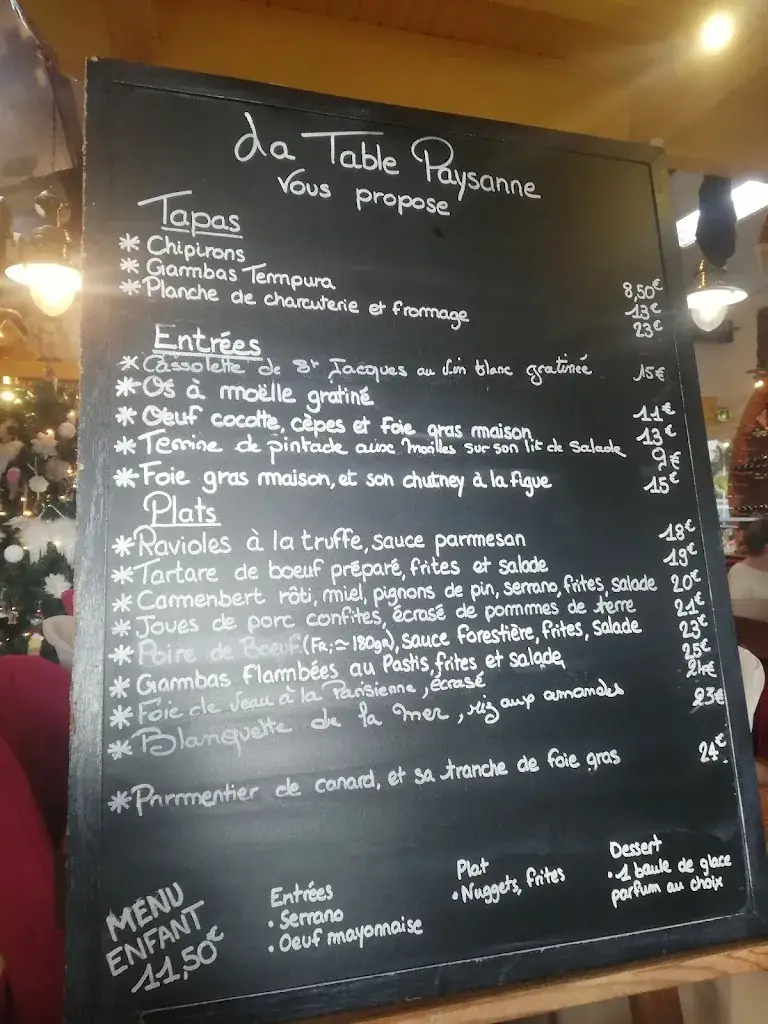 La Table Paysanne
Vous propose
Tapas
* Chipirons 8,50€
* Gambas Tempura 13€
* Planche de charcuterie et fromage 23€
Entrées
* Cassolette de St Jacques au vin blanc gratinée 15€
* Os à moëlle gratiné 11€
* Oeuf cocotte, cèpes et foie gras maison 13€
* Terrine de pintade aux morilles sur son lit de salade 9€
* Foie gras maison, et son chutney à la figue 15€
Plats
* Ravioles à la truffe, sauce parmesan 18€
* Tartare de boeuf préparé, frites et salade 19€
* Camenbert rôti, miel, pignons de pin, serrano, frites, salade 20€
* Joues de porc confites, écrasé de pommes de terre 21€
* Poire de Boeuf (FR; ≃ 180gr), sauce forestière, frites, salade 23€
* Gambas flambées au Pastis, frites et salade 25€
* Foie de veau à la Parisienne, écrasé 21€
* Blanquette de la mer, riz aux amandes 23€
* Parmentier de canard, et sa tranche de foie gras 24€
MENU
ENFANT
11,50€
Entrées
• Serrano
• Oeuf mayonnaise
Plat
• Nuggets, frites
Dessert
• 1 boule de glace
parfum au choix